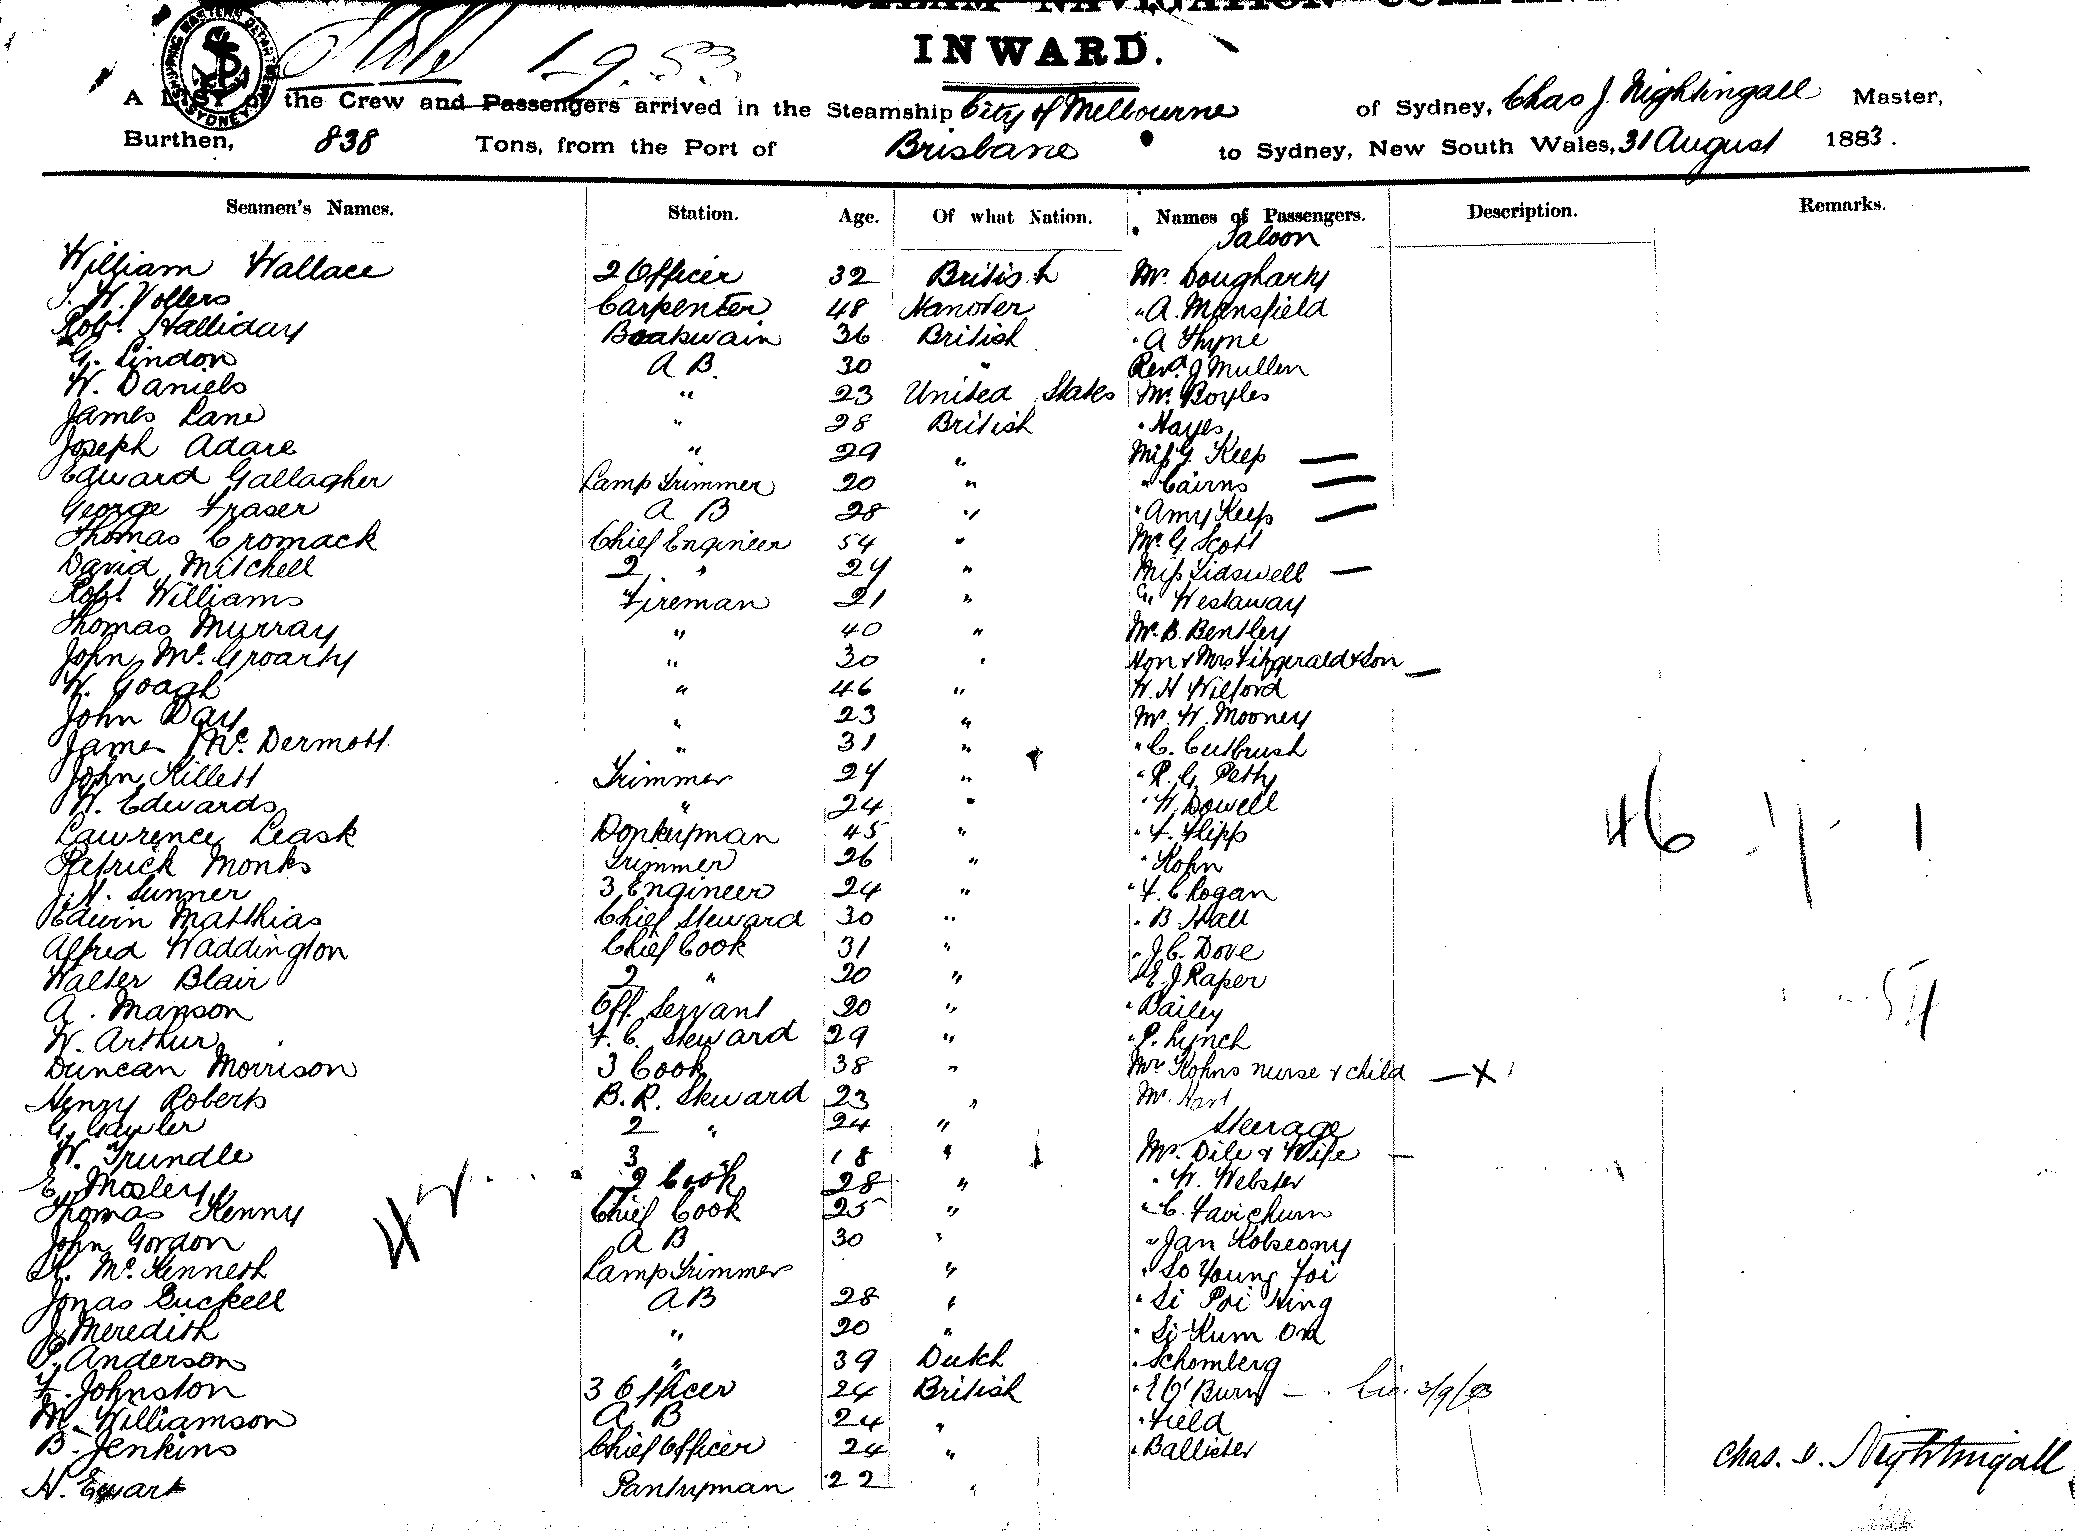 STEAM NAVIGATION COMPANY
INWARD.
A LIST of the Crew and Passengers arrived in the Steamship City of Melbourne of Sydney, Chas J. Nightingall Master,
Burthen, 838 Tons, from the Port of Brisbane to Sydney, New South Wales, 31 August 1883.
Seamen's Names. Station. Age. Of what Nation. Names of Passengers. Description. Remarks.
Saloon
William Wallace 2 Officer 32 British Mr. Dougharty
W. Vollers Carpenter 48 Hanover " A. Mansfield
Robt. Halliday Boatswain 36 British " A Thyne
G. Lindon A B. 30 " Revd. J Mullen
W. Daniels " 23 United States Mr. Boyles
James Lane " 28 British " Hayes
Joseph Adare " 29 " Miss G. Keep
Edward Gallagher Lamp Trimmer 20 " " Cairns
George Fraser A B 28 " " Amy Keep
Thomas Cromack Chief Engineer 54 " Mr. G Scott
David Mitchell 2 " 24 " Miss Lidswell
Robt. Williams Fireman 21 " " Westaway
Thomas Murray " 40 " Mr. B. Bentley
John Mc. Groarty " 30 " Hon & Mrs Fitzgerald & Son
W. Goagh " 46 " W. H Wilford
John Day " 23 " Mr. W. Mooney
James Mc. Dermott " 31 " " C. Cutbrush
John Killett Trimmer 24 " " R. G. Petty
W. Edwards " 24 " " W. Dowell
Lawrence Leask Donkeyman 45 " " F. Flipp
Patrick Monks Trimmer 26 " " Kohn
J. H. Sumner 3 Engineer 24 " " F. Chogan
Edwin Matthias Chief Steward 30 " " B. Hall
Alfred Waddington Chief Cook 31 " " J. C. Dove
Walter Blair 2 " 20 " " E. J Raper
A. Manson Off. Servant 20 " " Bailey
W. Arthur F. C. Steward 29 " " P. Lynch
Duncan Morrison 3 Cook 38 " Mr Kohns nurse & child
Henry Roberts B. R. Steward 23 " Mr. Hart
G. Cawler 2 " 24 " Steerage
W. Trundle 3 " 18 " Mr. Dile & Wife
E. Mosley 2 Cook 28 " " W. Webster
Thomas Kenny Chief Cook 25 " " C. Favichum
John Gordon A B 30 " " Jan Kobseony
Mc. Kenneth Lamp Trimmer " " So Young Foi
Jonas Guckell A B 28 " " Si Poi King
J. Meredith " 20 " " Si Kum On
Anderson " 39 Dutch " Schomberg
F. Johnston 3 Officer 24 British " E O'Burn
M. Williamson A B 24 " " Field
B. Jenkins Chief Officer 24 " " Ballister
H. Ewart Pantryman 22 "
46
54
Chas. J. Nightingall